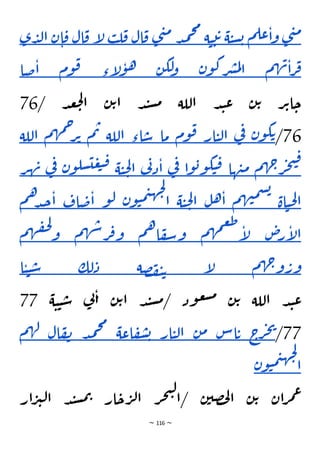 مني واعلم بسنة نبيه محمد مني قال قلت لا قال فإن الذي
قرأتهم المشركون ولكن هؤلاء قوم أصا
جابر بن عبد الله مسند ابن الجعد /76
76/يكون في النار قوم ما شاء الله ثم يرحمهم الله
فيخرجهم منها فيكونوا في أدنى الجنة فيغتسلون في نهر
الحياة يسميهم أهل الجنة الجهنميون لو أضاف أحدهم
الأرض لأطعمهم وسقاهم وفرشهم ولحفهم
وزوجهم لا ينقصه ذلك شيئا
عبد الله بن مسعود /مسند ابن أبي شيبة 77
77/يخرج ناس من النار بشفاعة محمد يقال لهم
الجهنميون
عمران بن الحصين /البحر الزخار بمسند البزار
~ 116 ~